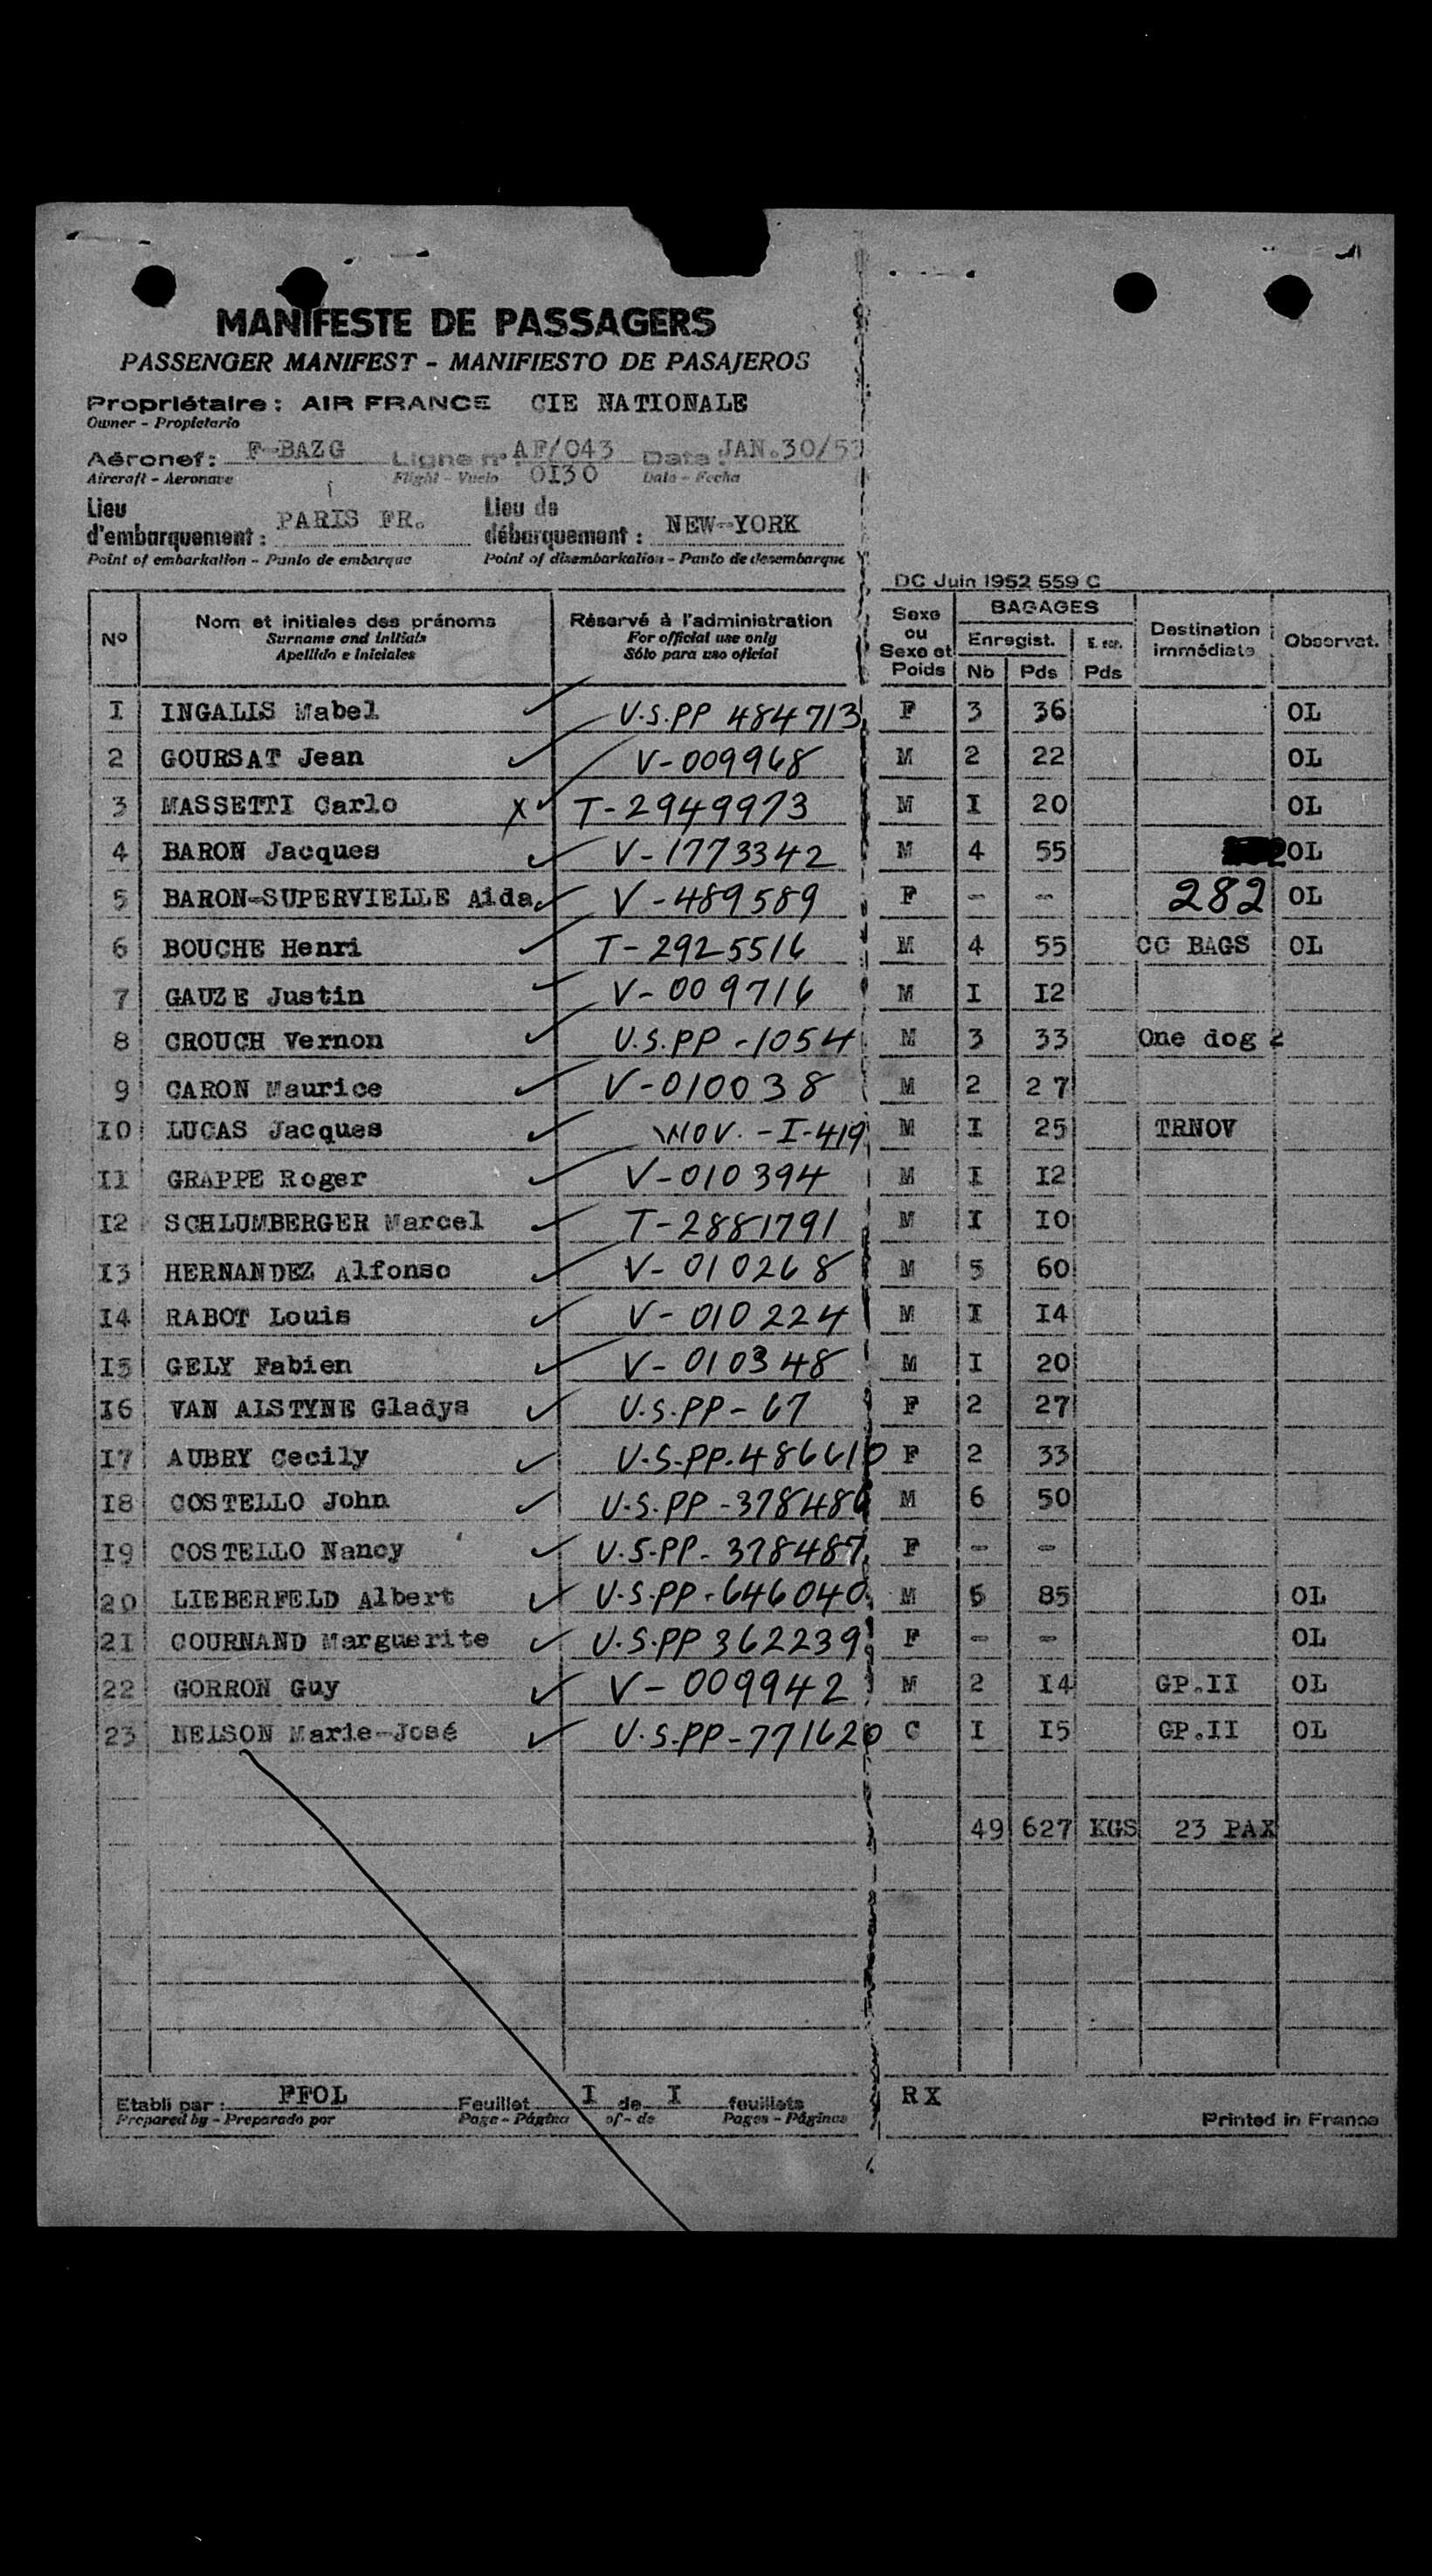 MANIFESTE DE PASSAGERS
PASSENGER MANIFEST - MANIFIESTO DE PASAJEROS
Propriétaire : AIR FRANCE CIE NATIONALE
Owner - Propietario
Aéronef : F-BAZG Ligne n° AF/043 Date : JAN.30/53
Aircraft - Aeronave Flight - Vuelo 0I30 Date - Fecha
Lieu d'embarquement : PARIS FR. Lieu de débarquement : NEW-YORK
Point of embarkation - Punto de embarque Point of disembarkation - Punto de desembarque
DC Juin 1952 559 C
N° Nom et initiales des prénoms Réservé à l'administration Sexe ou Sexe et Poids BAGAGES Destination immédiate Observat.
Surname and initials For official use only Enregist.
Apellido e iniciales Sólo para uso oficial Nb Pds Pds
I INGALIS Mabel V.S.PP 484713 F 3 36 OL
2 GOURSAT Jean V-009968 M 2 22 OL
3 MASSETTI Carlo X T-2949973 M I 20 OL
4 BARON Jacques V-1773342 M 4 55 OL
5 BARON-SUPERVIELLE Aida V-489589 F - - 282 OL
6 BOUCHE Henri T-2925516 M 4 55 CC BAGS OL
7 GAUZE Justin V-009716 M I I2
8 CROUCH Vernon U.S.PP-1054 M 3 33 One dog 2
9 CARON Maurice V-010038 M 2 27
I0 LUCAS Jacques NOV.-I-419 M I 25 TRNOV
II GRAPPE Roger V-010394 M I I2
I2 SCHLUMBERGER Marcel T-2881791 M I I0
I3 HERNANDEZ Alfonso V-010268 M 5 60
I4 RABOT Louis V-010224 M I I4
I5 GELY Fabien V-010348 M I 20
I6 VAN ALSTYNE Gladys U.S.PP-67 F 2 27
I7 AUBRY Cecily U.S.PP.486610 F 2 33
I8 COSTELLO John U.S.PP-378486 M 6 50
I9 COSTELLO Nancy U.S.PP-378487 F - -
20 LIEBERFELD Albert U.S.PP-646040 M 6 85 OL
2I COURNAND Marguerite U.S.PP 362239 F - - OL
22 GORRON Guy V-009942 M 2 I4 GP.II OL
23 NELSON Marie-José U.S.PP-771620 C I I5 GP.II OL
49 627 KGS 23 PAX
Etabli par : PFOL Feuillet I de I feuillets RX
Prepared by - Preparado por Page - Página of - de Pages - Páginas Printed in France